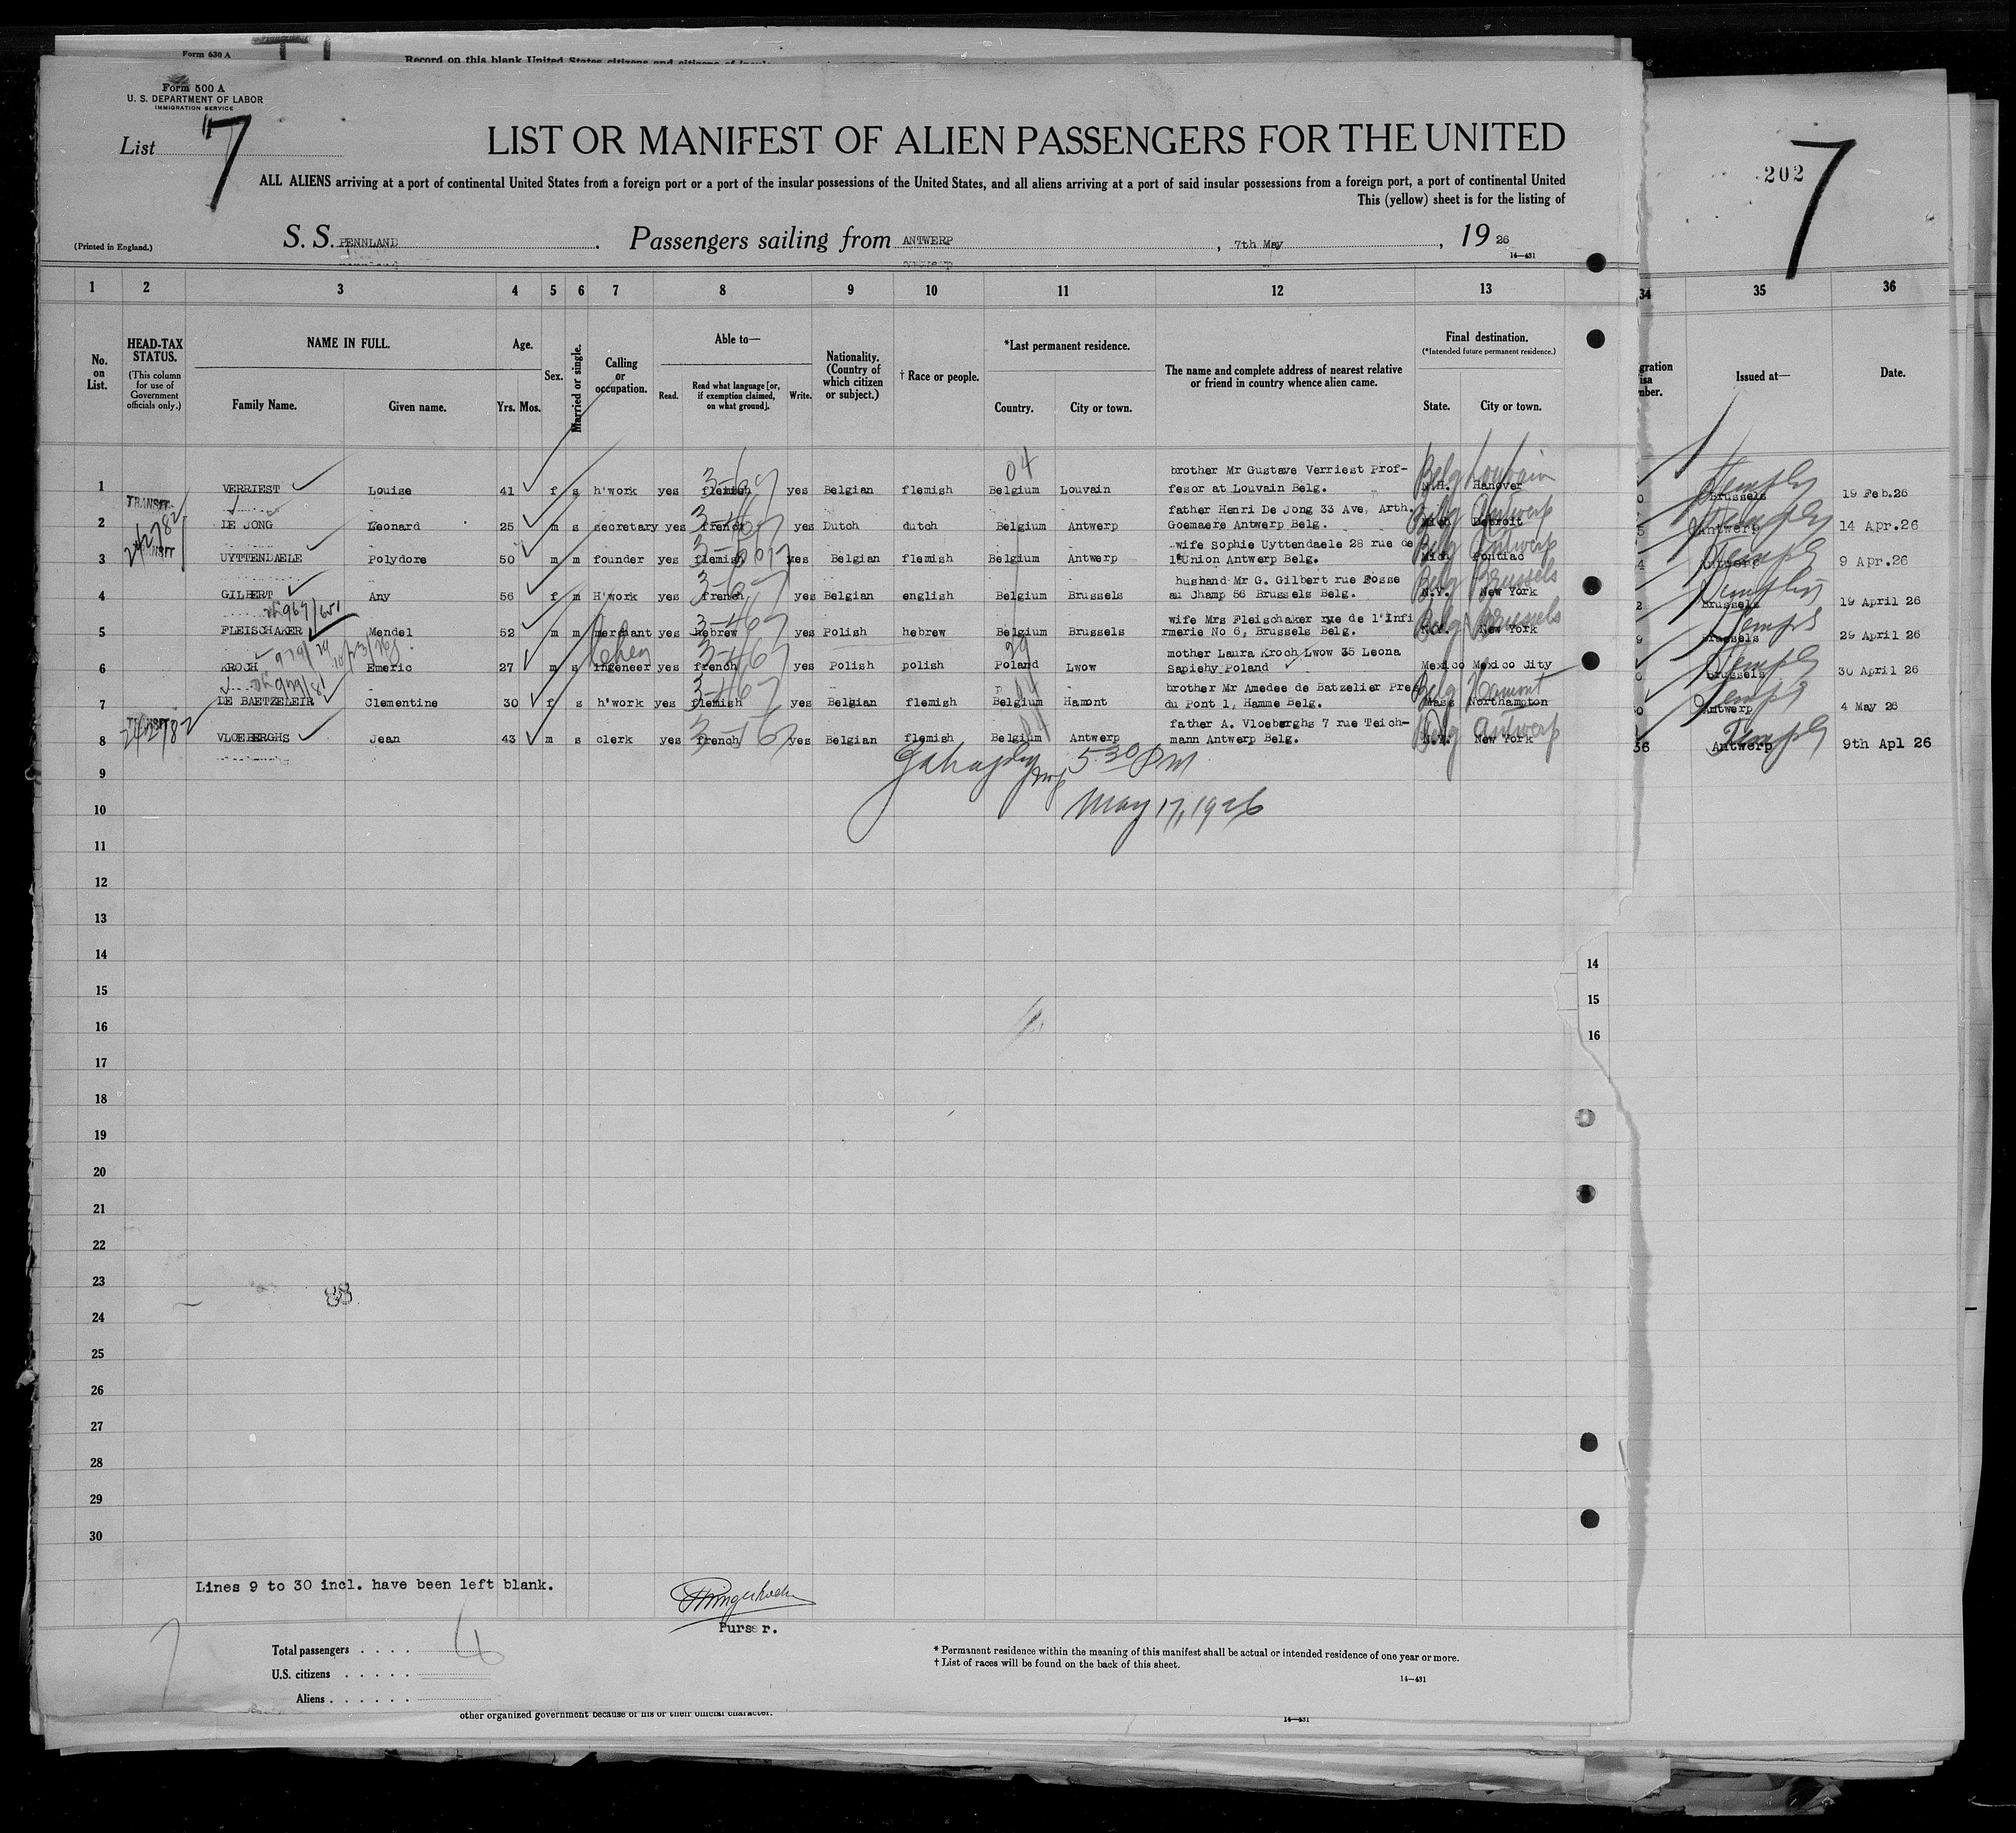 Form 630 A
Record on this blank United States citizens and citizens of
Form 500 A
U. S. DEPARTMENT OF LABOR
IMMIGRATION SERVICE
List 7
LIST OR MANIFEST OF ALIEN PASSENGERS FOR THE UNITED
ALL ALIENS arriving at a port of continental United States from a foreign port or a port of the insular possessions of the United States, and all aliens arriving at a port of said insular possessions from a foreign port, a port of continental United
This (yellow) sheet is for the listing of
202
7
(Printed in England.)
S. S. PENNLAND. Passengers sailing from ANTWERP, 7th May, 19 26
14—431
1 2 3 4 5 6 7 8 9 10 11 12 13 34 35 36
No. on List.
HEAD-TAX STATUS.
(This column for use of Government officials only.)
NAME IN FULL.
Family Name. Given name.
Age.
Yrs. Mos.
Sex.
Married or single.
Calling or occupation.
Able to—
Read. Read what language [or, if exemption claimed, on what ground]. Write.
Nationality. (Country of which citizen or subject.)
† Race or people.
*Last permanent residence.
Country. City or town.
The name and complete address of nearest relative or friend in country whence alien came.
Final destination.
(*Intended future permanent residence.)
State. City or town.
gration
isa
nber.
Issued at—
Date.
04
1 VERRIEST Louise 41 f s h'work yes flemish yes Belgian flemish Belgium Louvain brother Mr Gustave Verriest Prof-
fesor at Louvain Belg. N.H. Hanover Belg Louvain 0 Brussels 19 Feb.26
TRANSIT
2 DE JONG Leonard 25 m s secretary yes french yes Dutch dutch Belgium Antwerp father Henri De Jong 33 Ave, Arth.
Goemaere Antwerp Belg. Mich Detroit Belg Antwerp 5 Antwerp 14 Apr.26
TRANSIT
3 UYTTENDAELE Polydore 50 m m founder yes flemish yes Belgian flemish Belgium Antwerp wife Sophie Uyttendaele 28 rue de
l'Union Antwerp Belg. Mich Pontiac Belg Antwerp 4 Antwerp 9 Apr.26
4 GILBERT Any 56 f m H'work yes french yes Belgian english Belgium Brussels husband Mr G. Gilbert rue Fosse
au Champ 56 Brussels Belg. N.Y. New York Belg Brussels 2 Brussels 19 April 26
5 FLEISCHAKER Mendel 52 m m merchant yes hebrew yes Polish hebrew Belgium Brussels wife Mrs Fleischaker rue de l'Infi
rmerie No 6, Brussels Belg. N.Y. New York Belg Brussels 9 Brussels 29 April 26
29
6 KROCH Emeric 27 m s ingeneer yes french yes Polish polish Poland Lwow mother Laura Kroch Lwow 35 Leona
Sapiehy Poland Mexico Mexico City 0 Brussels 30 April 26
7 DE BAETZELEIR Clementine 30 f s h'work yes flemish yes Belgian flemish Belgium Hamont brother Mr Amedee de Batzelier Pres
du Pont 1, Hamme Belg. Mass Northampton Belg Hamont 0 Antwerp 4 May 26
TRANSIT
8 VLOEBERGHS Jean 43 m s clerk yes french yes Belgian flemish Belgium Antwerp father A. Vloeberghs 7 rue Teich-
mann Antwerp Belg. N.Y. New York Belg Antwerp 36 Antwerp 9th Apl 26
9
5 30 PM
10
May 17, 1926
11
12
13
14 14
15 15
16 16
17
18
19
20
21
22
23
88
24
25
26
27
28
29
30
Lines 9 to 30 incl. have been left blank.
Purser.
Total passengers . . . .
U.S. citizens . . . . .
Aliens . . . . . .
* Permanent residence within the meaning of this manifest shall be actual or intended residence of one year or more.
† List of races will be found on the back of this sheet.
14—431
other organized government because of his or their official character.
14—431